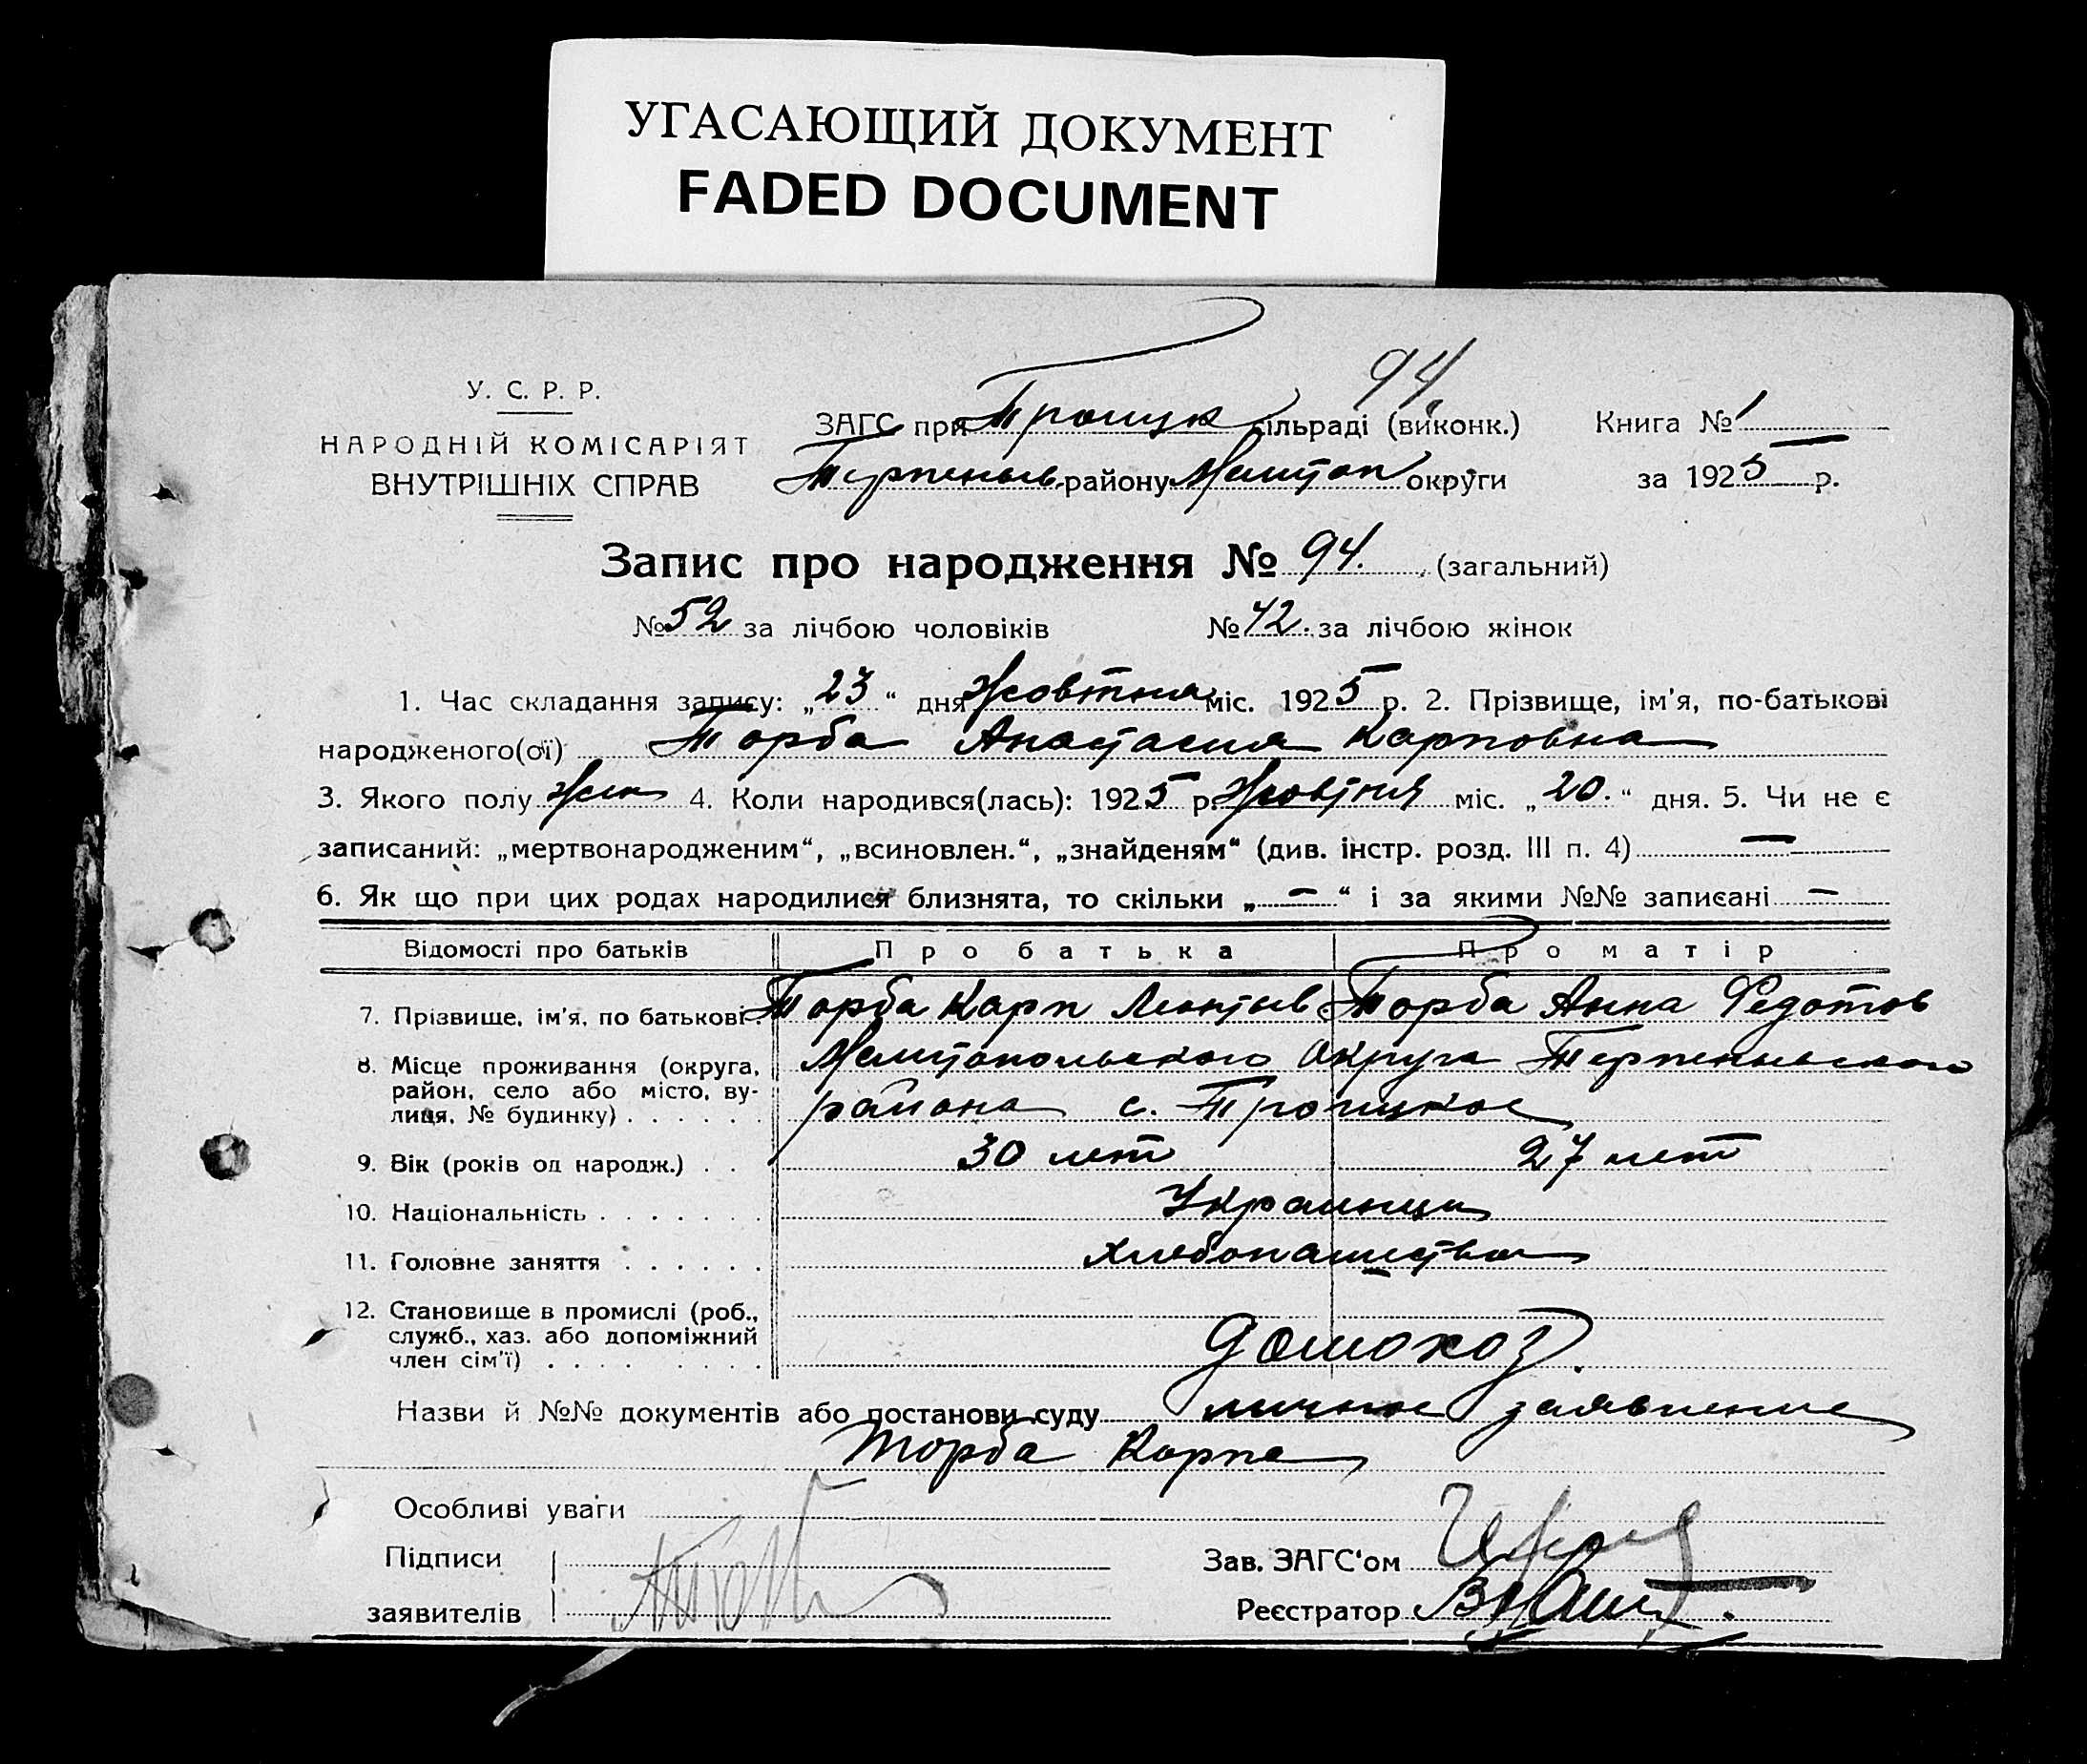 УГАСАЮЩИЙ ДОКУМЕНТ
FADED DOCUMENT
94.
У. С. Р. Р.
НАРОДНІЙ КОМІСАРІЯТ
ВНУТРІШНІХ СПРАВ
ЗАГС при Троицк сільраді (виконк.)
Терпеньев. району Мелитоп округи
Книга № 1
за 1925 р.
Запис про народження № 94. (загальний)
№ 52 за лічбою чоловіків № 42. за лічбою жінок
1. Час складання запису: „23“ дня Жовтня міс. 1925 р. 2. Прізвище, ім'я, по-батькові
народженого(ої) Торба Анастасия Карповна
3. Якого полу жен 4. Коли народився(лась): 1925 р. Жовтня міс. „20.“ дня. 5. Чи не є
записаний: „мертвонародженим“, „всиновлен.“, „знайденям“ (див. інстр. розд. III п. 4) —
6. Як що при цих родах народилися близнята, то скільки „—“ і за якими №№ записані —
Відомості про батьків Про батька Про матір
7. Прізвище, ім'я, по батькові . Торба Карп Леонтьев. Торба Анна Федотов
8. Місце проживання (округа, Мелитопольского Округа Терпеньевского
район, село або місто, ву-
лиця, № будинку) . . . . . . района с. Троицкое
9. Вік (років од народж.) . . 30 лет 27 лет
10. Національність . . . . . . . Украинцы
11. Головне заняття . . . . . . хлебопашество
12. Становище в промислі (роб.,
служб., хаз. або допоміжний
член сім'ї) . . . . . . . . . домохоз.
Назви й №№ документів або постанови суду личное заявление
Торба Карпа
Особливі уваги
Підписи
заявителів
Зав. ЗАГС'ом
Реєстратор